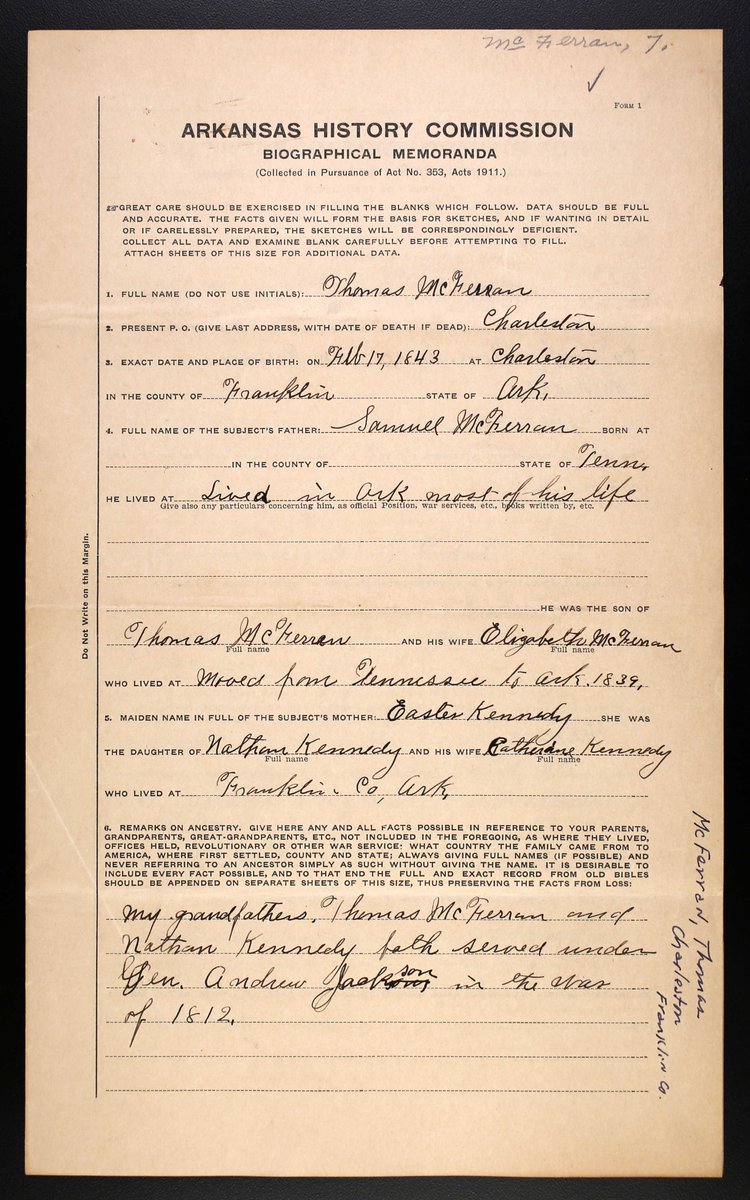 McFerran, T.
✓
FORM 1
ARKANSAS HISTORY COMMISSION
BIOGRAPHICAL MEMORANDA
(Collected in Pursuance of Act No. 353, Acts 1911.)
☞GREAT CARE SHOULD BE EXERCISED IN FILLING THE BLANKS WHICH FOLLOW. DATA SHOULD BE FULL
AND ACCURATE. THE FACTS GIVEN WILL FORM THE BASIS FOR SKETCHES, AND IF WANTING IN DETAIL
OR IF CARELESSLY PREPARED, THE SKETCHES WILL BE CORRESPONDINGLY DEFICIENT.
COLLECT ALL DATA AND EXAMINE BLANK CAREFULLY BEFORE ATTEMPTING TO FILL.
ATTACH SHEETS OF THIS SIZE FOR ADDITIONAL DATA.
1. FULL NAME (DO NOT USE INITIALS): Thomas McFerran
2. PRESENT P. O. (GIVE LAST ADDRESS, WITH DATE OF DEATH IF DEAD): Charleston
3. EXACT DATE AND PLACE OF BIRTH: ON Feb 17, 1843 AT Charleston
IN THE COUNTY OF Franklin STATE OF Ark,
4. FULL NAME OF THE SUBJECT'S FATHER: Samuel McFerran BORN AT
IN THE COUNTY OF STATE OF Tenn,
HE LIVED AT Lived in Ark most of his life
Give also any particulars concerning him, as official Position, war services, etc., books written by, etc.
HE WAS THE SON OF
Thomas McFerran AND HIS WIFE Elizabeth McFerran
Full name Full name
WHO LIVED AT Moved from Tennessee to Ark. 1839,
5. MAIDEN NAME IN FULL OF THE SUBJECT'S MOTHER: Easter Kennedy SHE WAS
THE DAUGHTER OF Nathan Kennedy AND HIS WIFE Catherane Kennedy
Full name Full name
WHO LIVED AT Franklin Co, Ark,
6. REMARKS ON ANCESTRY. GIVE HERE ANY AND ALL FACTS POSSIBLE IN REFERENCE TO YOUR PARENTS,
GRANDPARENTS, GREAT-GRANDPARENTS, ETC., NOT INCLUDED IN THE FOREGOING, AS WHERE THEY LIVED,
OFFICES HELD, REVOLUTIONARY OR OTHER WAR SERVICE: WHAT COUNTRY THE FAMILY CAME FROM TO
AMERICA, WHERE FIRST SETTLED, COUNTY AND STATE; ALWAYS GIVING FULL NAMES (IF POSSIBLE) AND
NEVER REFERRING TO AN ANCESTOR SIMPLY AS SUCH WITHOUT GIVING THE NAME. IT IS DESIRABLE TO
INCLUDE EVERY FACT POSSIBLE, AND TO THAT END THE FULL AND EXACT RECORD FROM OLD BIBLES
SHOULD BE APPENDED ON SEPARATE SHEETS OF THIS SIZE, THUS PRESERVING THE FACTS FROM LOSS:
My grandfathers, Thomas McFerran and
Nathan Kennedy both served under
Gen. Andrew Jackson in the War
of 1812.
Do Not Write on this Margin.
McFerran, Thomas
Charleston
Franklin Co.